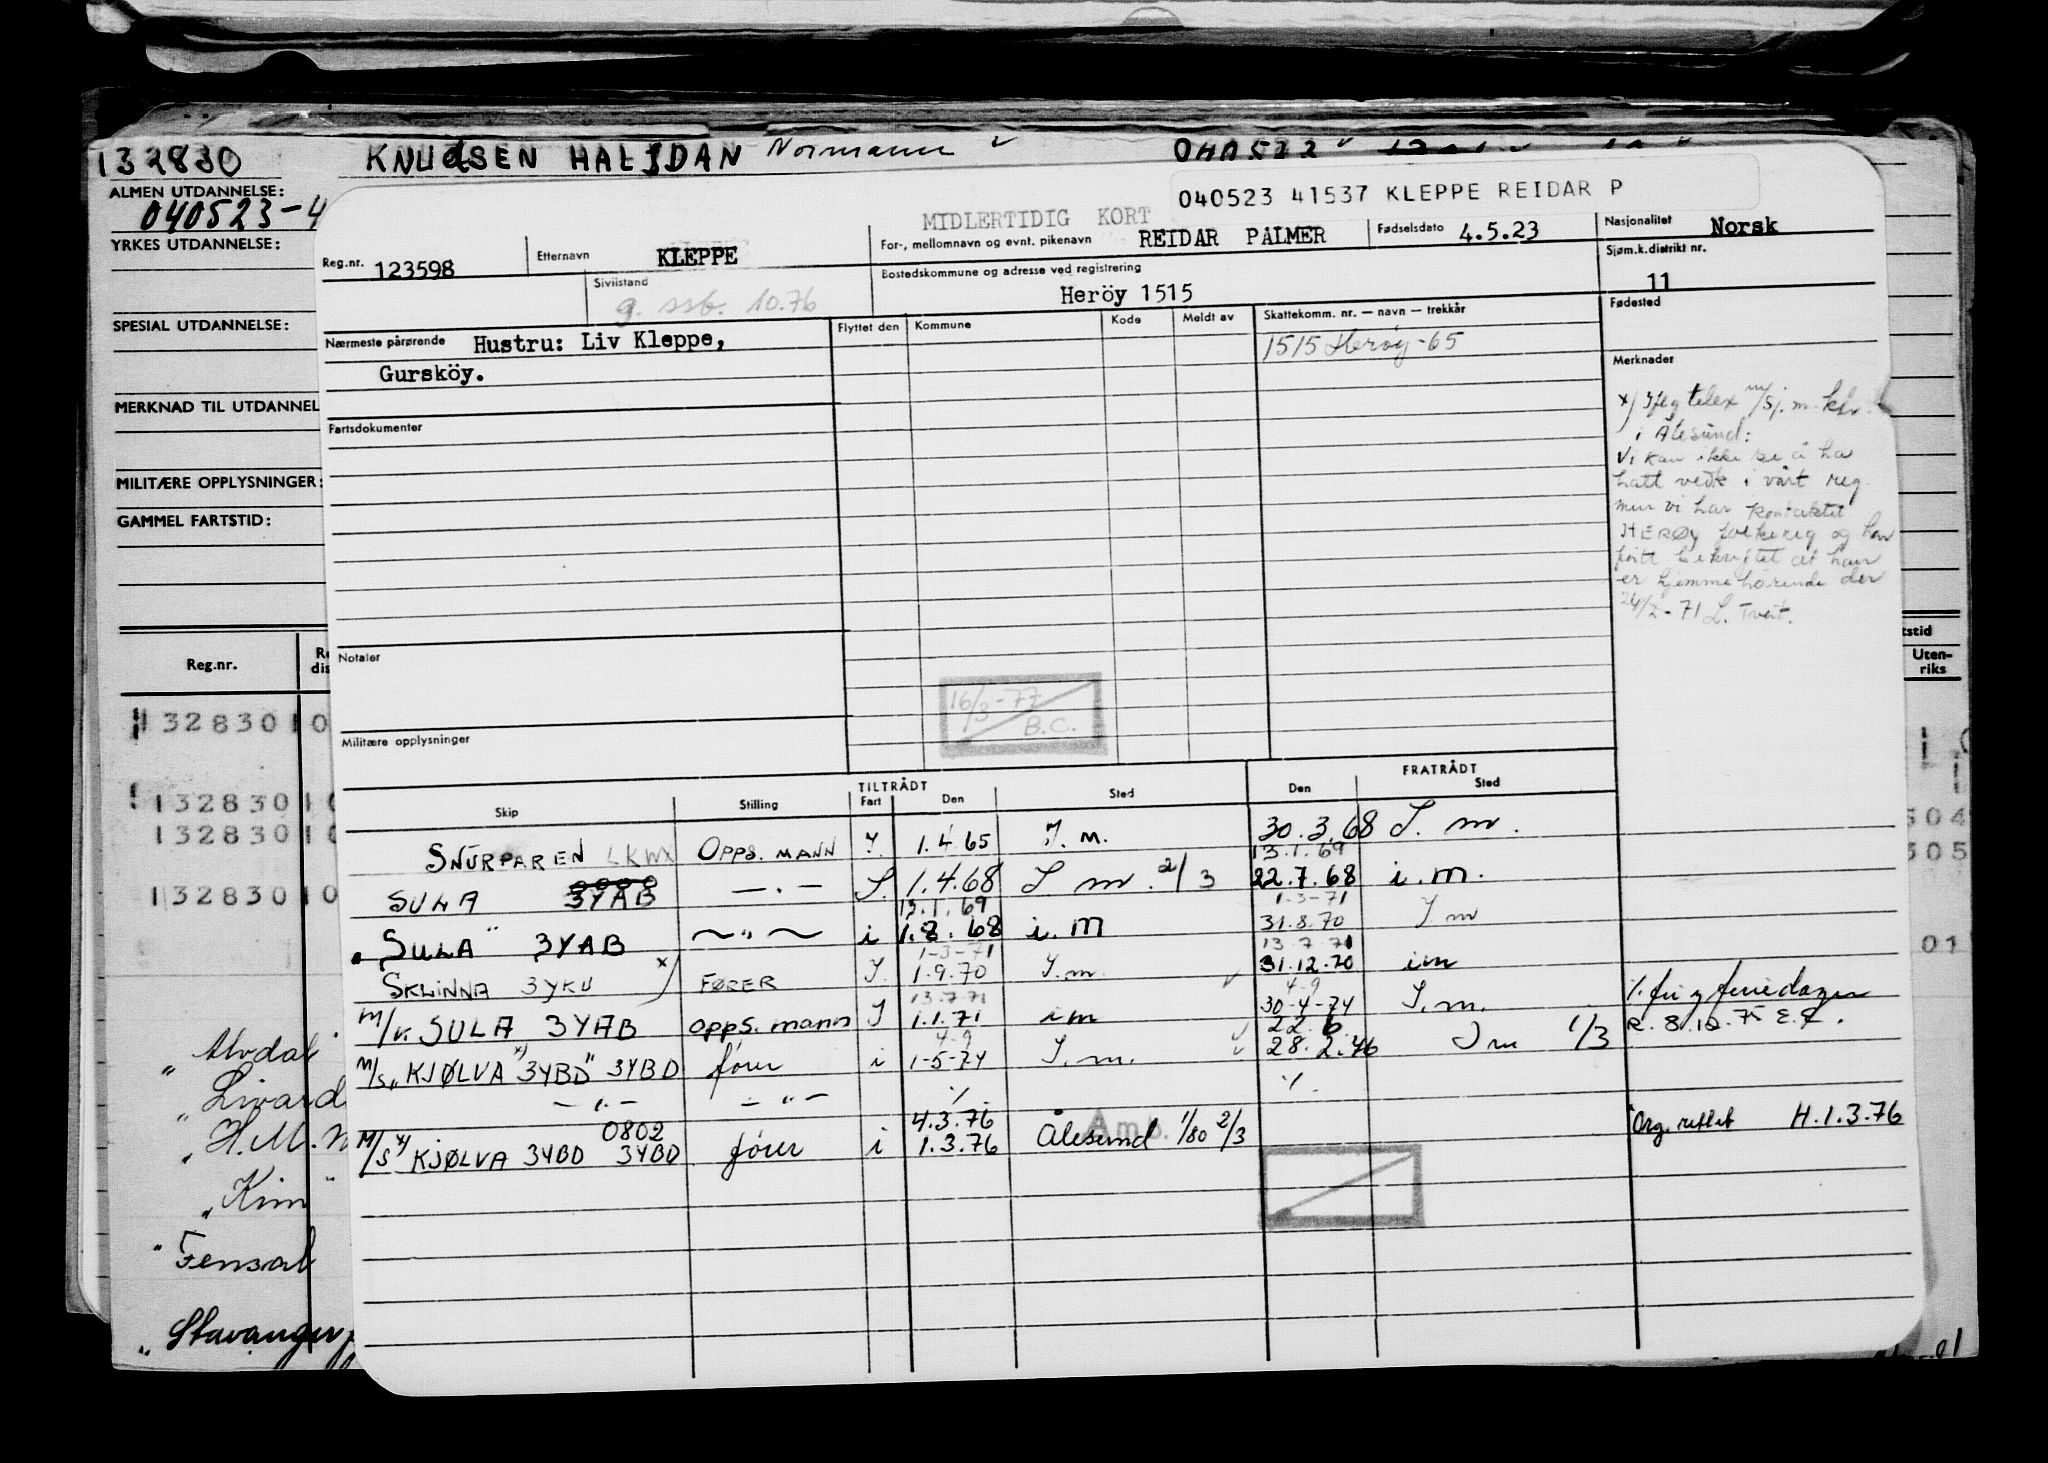 132830 KNUDSEN HALFDAN Normann
ALMEN UTDANNELSE:
040523-4
YRKES UTDANNELSE:
SPESIAL UTDANNELSE:
MERKNAD TIL UTDANNEL
MILITÆRE OPPLYSNINGER:
GAMMEL FARTSTID:
Reg.nr.
132830 10
132830 10
132830 10
132830 10
" Alvdal
" Livard
" H.M.
" Kim "
" Fensal
" Stavanger
tstid
Uten-
riks
504
305
01
040523 41537 KLEPPE REIDAR P
MIDLERTIDIG KORT
Reg.nr. 123598
Etternavn KLEPPE
For-, mellomnavn og evnt. pikenavn REIDAR PALMER
Fødselsdato 4.5.23
Nasjonalitet Norsk
Sivilstand g. ssb. 10.76
Bostedskommune og adresse ved registrering
Heröy 1515
Sjøm.k.distrikt nr.
11
Nærmeste pårørende Hustru: Liv Kleppe,
Gursköy.
Flyttet den Kommune Kode Meldt av
Skattekomm. nr. — navn — trekkår
1515 Herøy-65
Fødested
Merknader
x) Ifølg telex m/Sj.m.ktr.
i Ålesund:
Vi kan ikke se å ha
hatt vedk i vårt reg
men vi har kontaktet
HERØY folkereg og har
fått bekreftet at han
er hjemmehørende der
24/2-71 L. Tveit.
Fartsdokumenter
Notater
16/3-77
B.C.
Militære opplysninger
TILTRÅDT FRATRÅDT
Skip Stilling Fart Den Sted Den Sted
SNURPAREN LKWX OPPS. MANN I. 1.4.65 I. m. 30.3.68 I. m.
13.1.69
SULA 3YAB —.— I. 1.4.68 I m. 2/3 22.7.68 i.m.
13.1.69 1-3-71
"SULA" 3YAB —"— i 1.8.68 i.m 31.8.70 I m
1-3-71 13.7.71
SKLINNA 3YKU x) FØRER I. 1.9.70 I.m. 31.12.70 im
13.7.71 4-9
M/k. SULA 3YAB opps. mann I 1.1.71 im 30-4-74 I.m. 
4-9 22.6
M/S "KJØLVA" 3YBD" 3YBD fører i 1-5-74 I.m. 28.2.76 I m 1/3 R. 8.12.75 E.E.
—"— —"—
0802 4.3.76 Amb.
M/S KJØLVA 3YBD 3YBD fører i 1.3.76 Ålesund 1/80 2/3 Org. rettet H.1.3.76